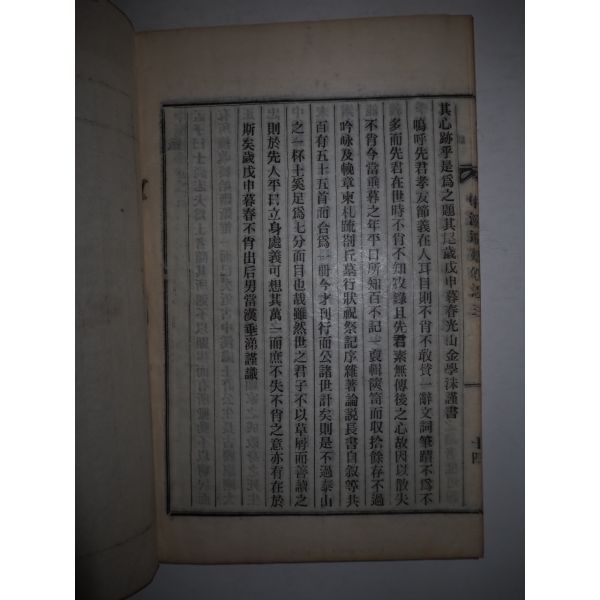 其心跡乎是爲之題其尾歲戊申暮春光山金學洙謹書
嗚呼先君孝友節義在人耳目則不肖不敢贊一辭文詞筆蹟不爲不
多而先君在世時不肖不知收錄且先君素無傳後之心故因以散失
不肖今當垂暮之年平日所知百不記一裒輯篋笥而收拾餘存不過
吟咏及輓章柬札疏劄丘墓行狀祝祭記序雜著論說長書自叙等共
百有五十五首而合爲一冊今才刊行而公諸世計矣則是不過泰山
之一杯土奚足爲七分面目也哉雖然世之君子不以草屑而善讀之
則於先人平日立身處義可想其萬一而庶不失不肖之意亦有在於
斯矣歲戊申暮春不肖出后男當漢垂涕謹識
十四